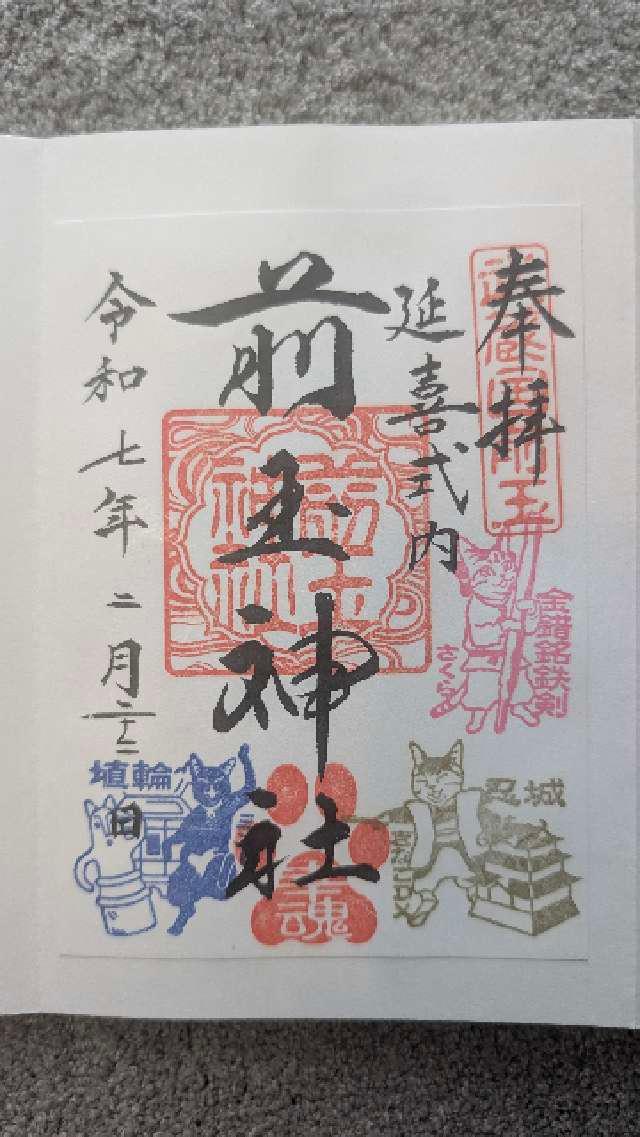 奉拝
延喜式内
前玉神社
令和七年二月二十二日
前玉
神社
金錯銘鉄剣
さくら
忍城
埴輪
魂